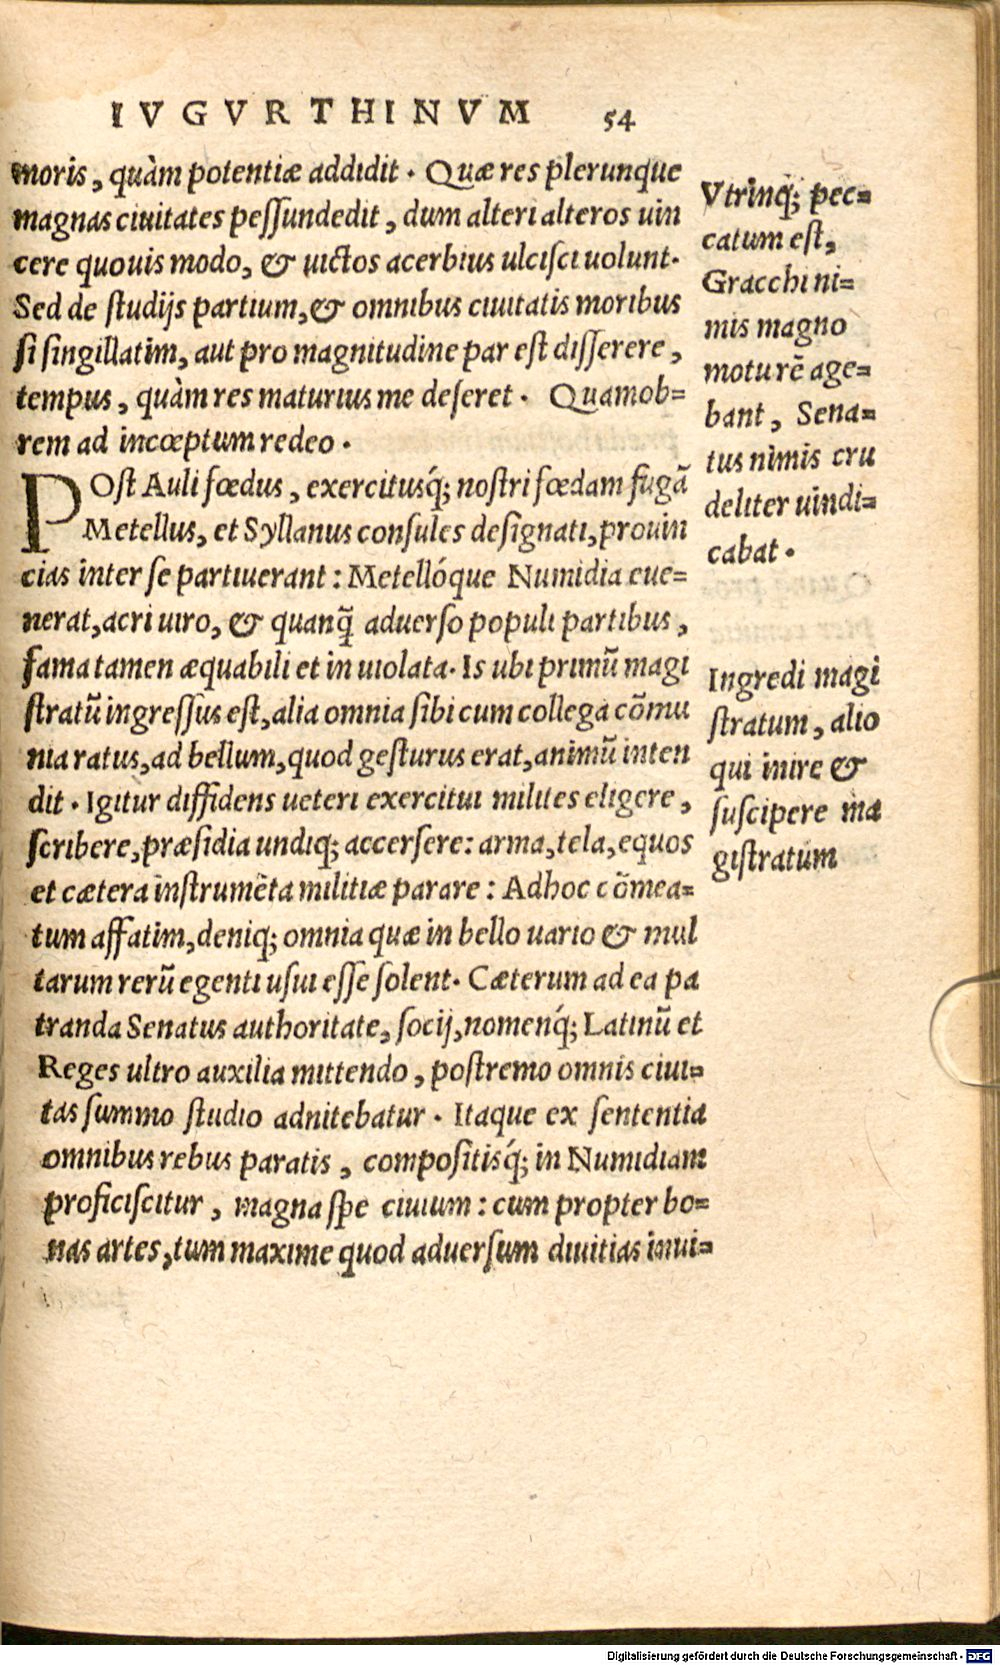 IVGVRTHINVM 54
moris, quàm potentiæ addidit. Quæ res plerunque
magnas ciuitates peſſundedit, dum alteri alteros uin
cere quouis modo, & uictos acerbius ulciſci uolunt.
Sed de ſtudijs partium, & omnibus ciuitatis moribus
ſi ſingillatim, aut pro magnitudine par eſt diſſerere,
tempus, quàm res maturius me deſeret. Quamob=
rem ad incœptum redeo.
POſt Auli fœdus, exercitusq́; noſtri fœdam fugā
Metellus, et Syllanus conſules deſignati, prouin
cias inter ſe partiuerant: Metellóque Numidia eue=
nerat, acri uiro, & quanq̃ aduerſo populi partibus,
fama tamen æquabili et in uiolata. Is ubi primū magi
ſtratū ingreſſus eſt, alia omnia ſibi cum collega cōmu
nia ratus, ad bellum, quod geſturus erat, animū inten
dit. Igitur diffidens ueteri exercitui milites eligere,
ſcribere, præſidia undiq; accerſere: arma, tela, equos
et cætera inſtrumēta militiæ parare: Adhoc cōmea=
tum affatim, deniq; omnia quæ in bello uario & mul
tarum rerū egenti uſui eſſe ſolent. Cæterum ad ea pa
tranda Senatus authoritate, ſocij, nomenq́; Latinū et
Reges ultro auxilia mittendo, poſtremo omnis ciui=
tas ſummo ſtudio adnitebatur. Itaque ex ſententia
omnibus rebus paratis, compoſitisq́; in Numidiam
proficiſcitur, magna ſpe ciuium: cum propter bo=
nas artes, tum maxime quod aduerſum diuitias inui=
Vtrinq; pec=
catum eſt,
Gracchi ni=
mis magno
motu rē age=
bant, Sena=
tus nimis cru
deliter uindi=
cabat.
Ingredi magi
ſtratum, alio
qui inire &
ſuſcipere ma
giſtratum
Digitalisierung gefördert durch die Deutsche Forschungsgemeinschaft - DFG